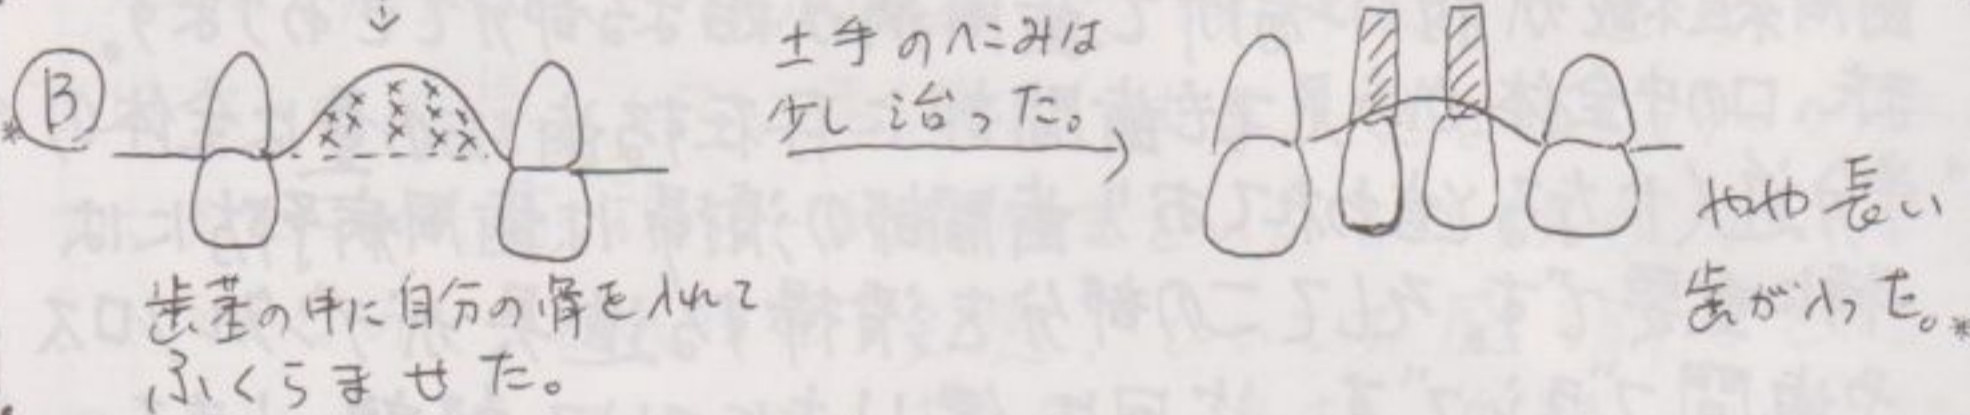 B
歯茎の中に自分の骨を入れて
ふくらませた。
土手のへこみは
少し治った。
やや長い
歯が入った。